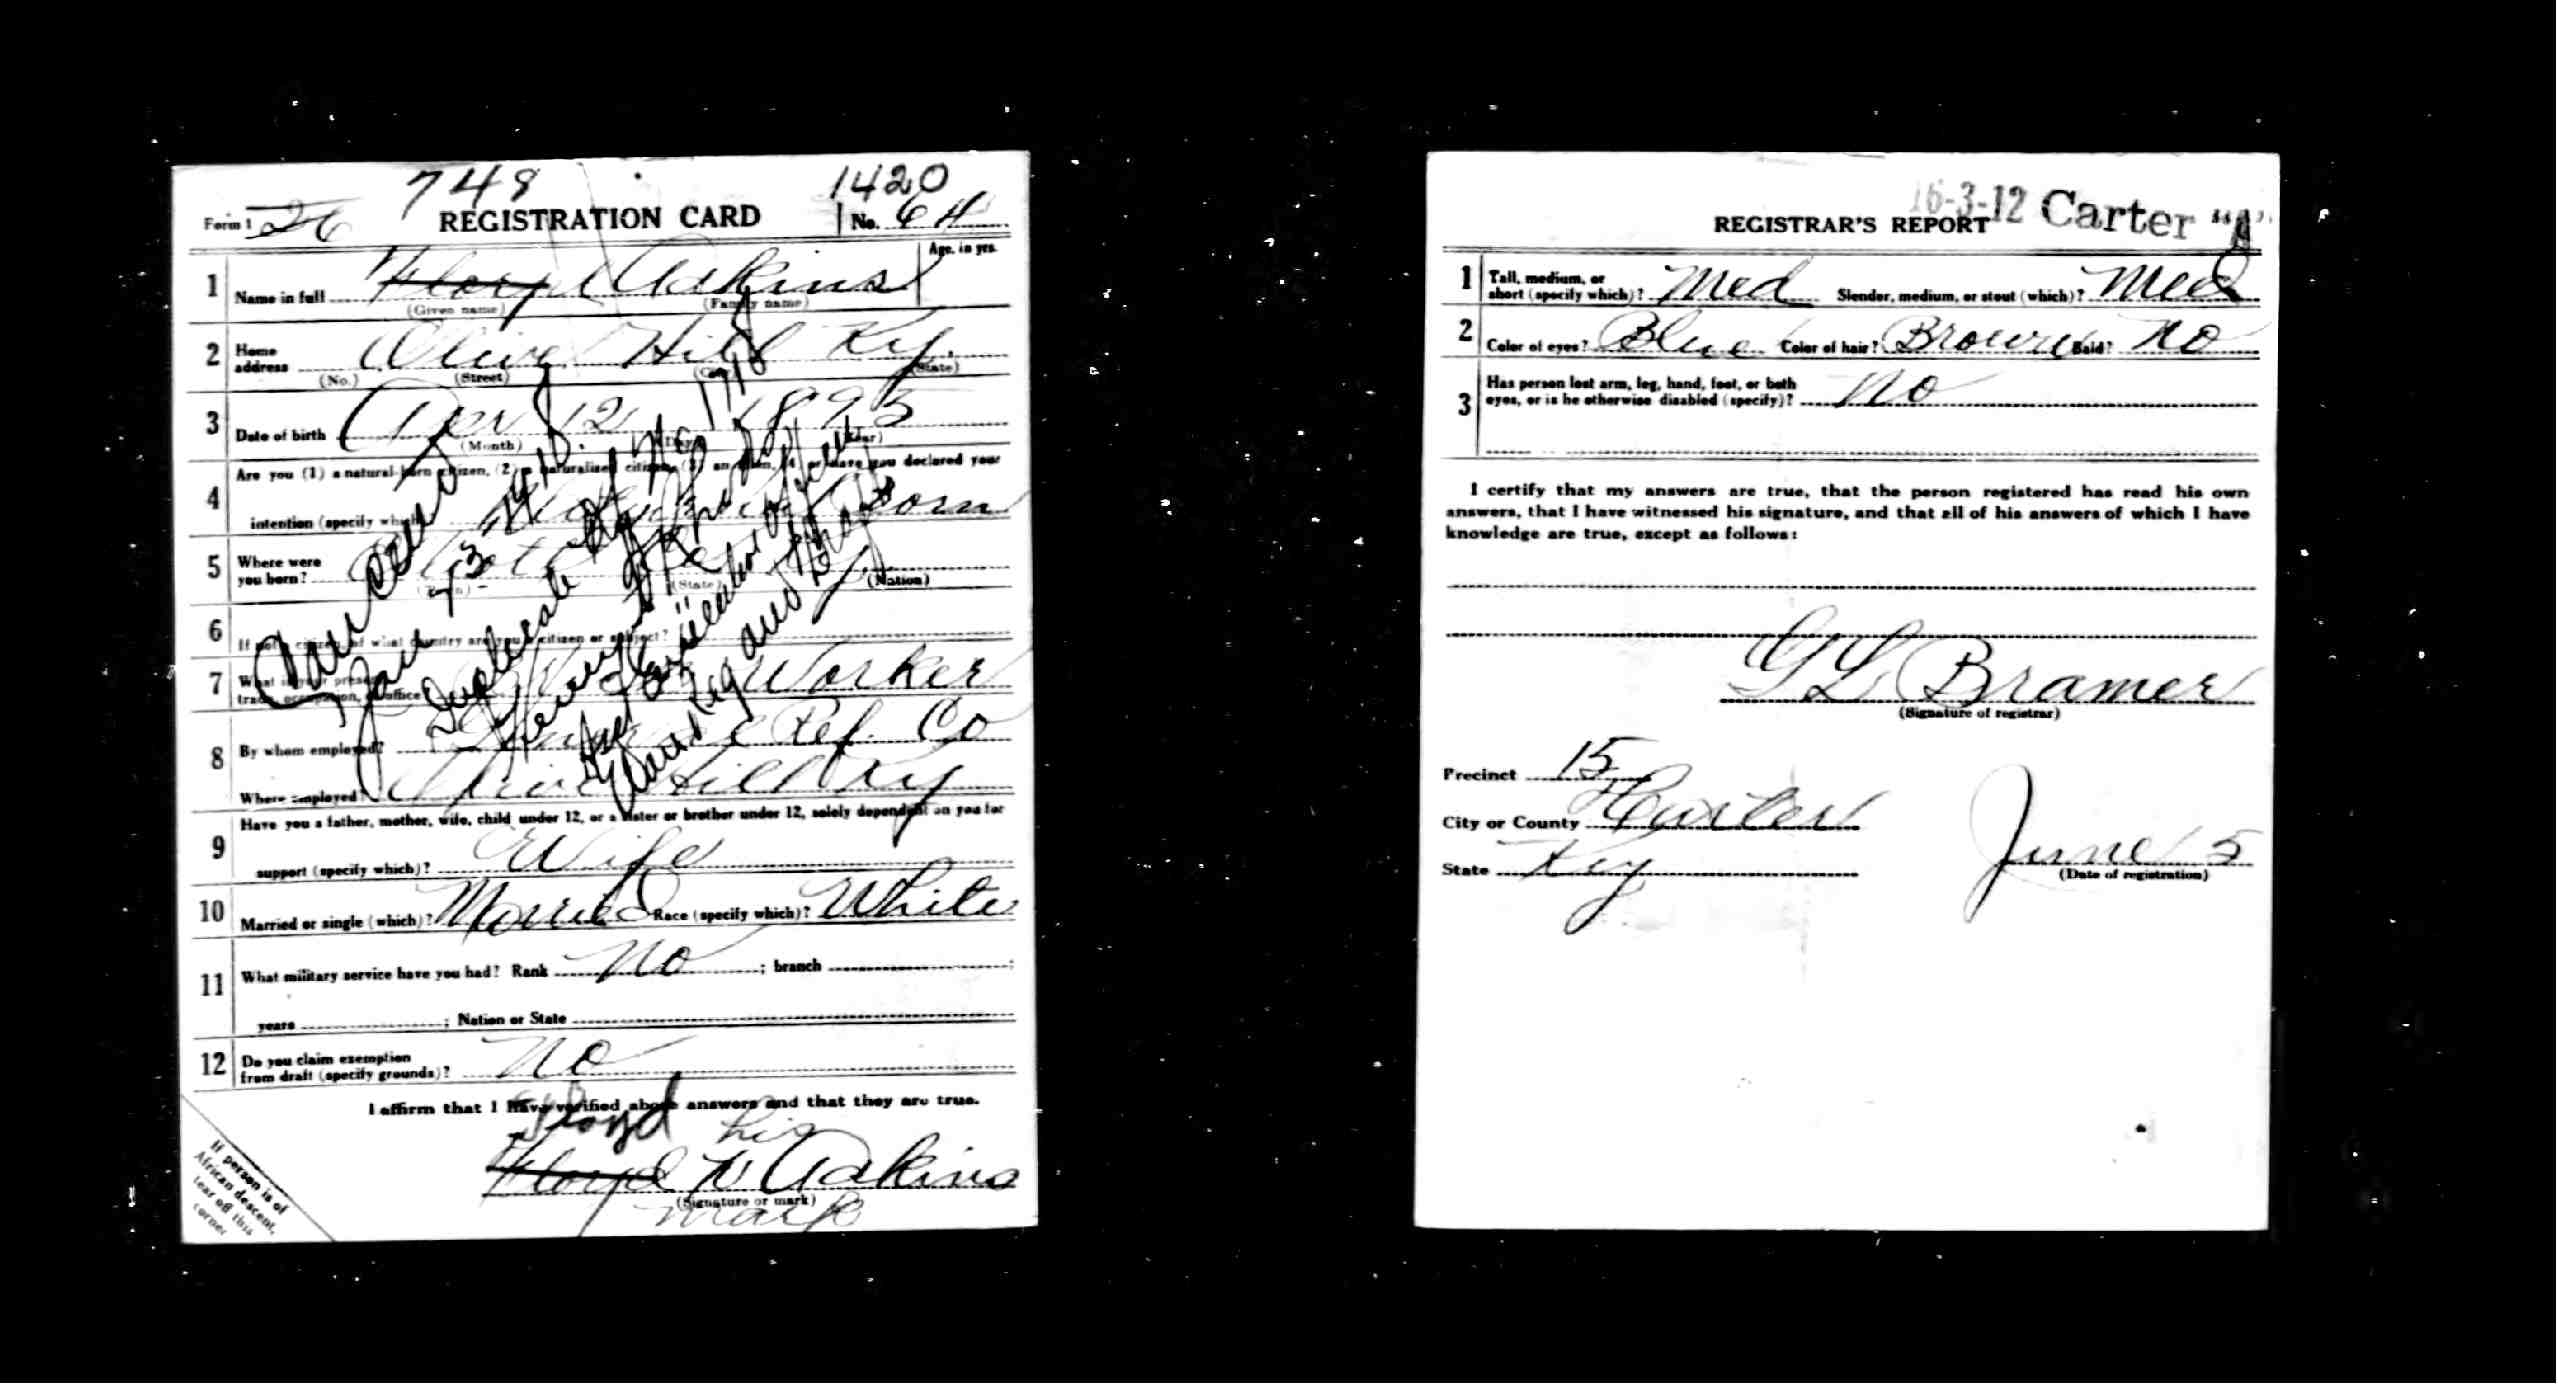 748 1420
Form 1 26 REGISTRATION CARD No. 64
Age, in yrs.
1 Name in full Floyd Adkins
(Given name) (Family name)
2 Home address Olive Hill Ky.
(No.) (Street) (City) (State)
3 Date of birth 12 1895
(Month) (Day) (Year)
4 Are you (1) a natural-born citizen, (2) a naturalized citizen, (3) an alien, (4) or have you declared your
intention (specify which)? Born
5 Where were you born?
(Town) (State) (Nation)
6 If not a citizen, of what country are you a citizen or subject?
7 What is your present trade, occupation, or office Worker
8 By whom employed? Ref. Co
Where employed? Olive Hill Ky
9 Have you a father, mother, wife, child under 12, or a sister or brother under 12, solely dependent on you for
support (specify which)? Wife
10 Married or single (which)? Married Race (specify which)? White
11 What military service have you had? Rank No ; branch ;
years ; Nation or State
12 Do you claim exemption from draft (specify grounds)? No
I affirm that I have verified above answers and that they are true.
Floyd his
Floyd x Adkins
(Signature or mark)
mark
If person is of
African descent,
tear off this
corner
Cancelled
Jan 23
Duplicate
16-3-12 Carter "A"
REGISTRAR'S REPORT
1 Tall, medium, or short (specify which)? Med Slender, medium, or stout (which)? Med
2 Color of eyes? Blue Color of hair? Brown Bald? No
3 Has person lost arm, leg, hand, foot, or both eyes, or is he otherwise disabled (specify)? No
I certify that my answers are true, that the person registered has read his own
answers, that I have witnessed his signature, and that all of his answers of which I have
knowledge are true, except as follows:
G L Bramer
(Signature of registrar)
Precinct 15
City or County Carter
State Ky
June 5
(Date of registration)